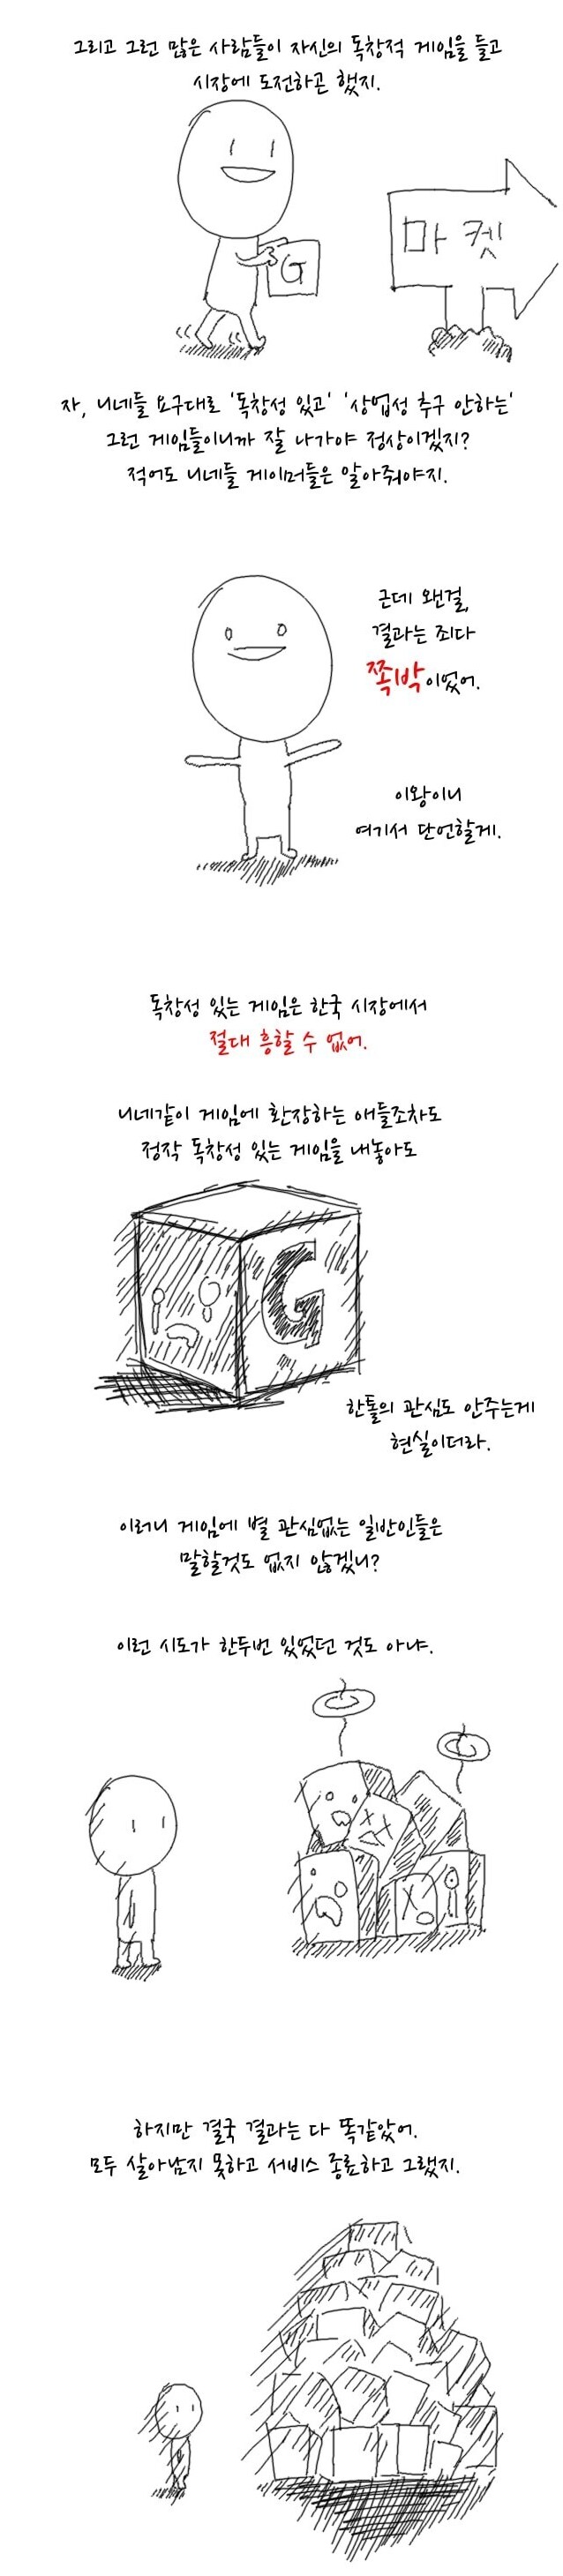 그리고 그런 많은 사람들이 자신의 독창적 게임을 들고
시장에 도전하곤 했지.
G
마켓
자, 니네들 요구대로 '독창성 있고' '상업성 추구 안하는'
그런 게임들이니까 잘 나가야 정상이겠지?
적어도 니네들 게이머들은 알아줘야지.
근데 왠걸,
결과는 죄다
쪽박이었어.
이왕이니
여기서 단언할게.
독창성 있는 게임은 한국 시장에서
절대 흥할 수 없어.
니네같이 게임에 환장하는 애들조차도
정작 독창성 있는 게임을 내놓아도
G
한톨의 관심도 안주는게
현실이더라.
이러니 게임에 별 관심없는 일반인들은
말할것도 없지 않겠니?
이런 시도가 한두번 있었던 것도 아냐.
하지만 결국 결과는 다 똑같았어.
모두 살아남지 못하고 서비스 종료하고 그랬지.